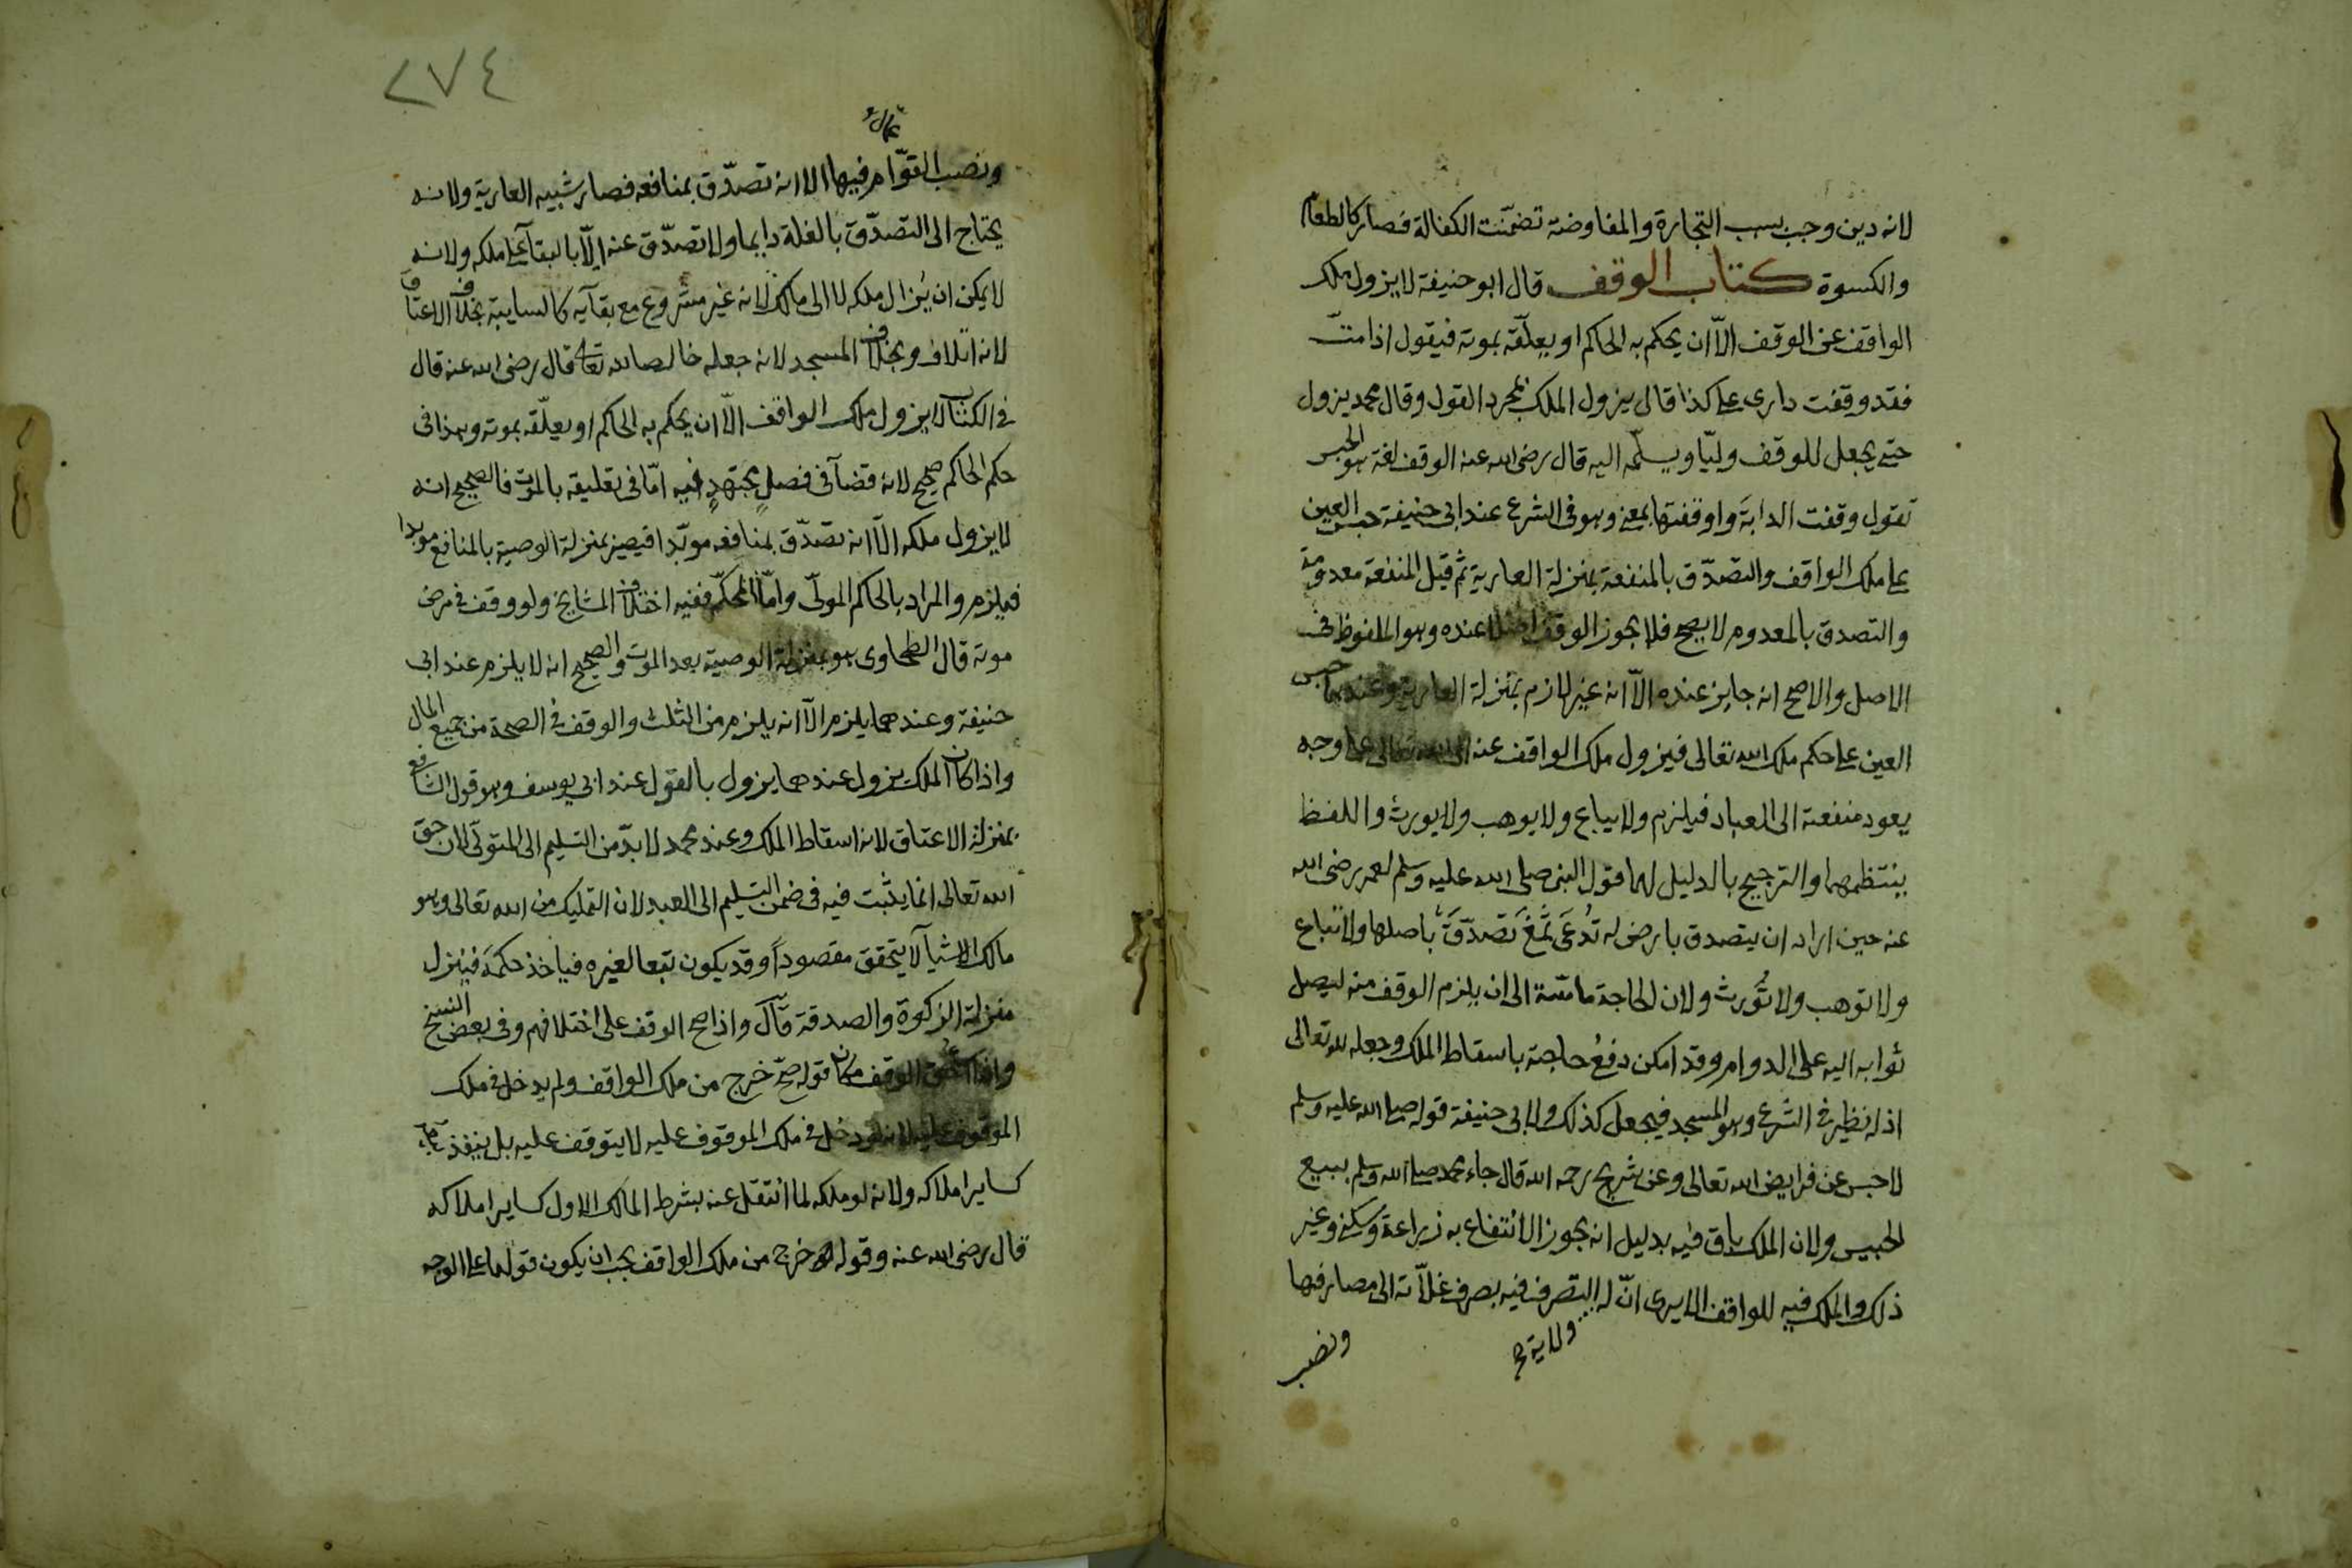 لانه دين وجب بسبب التجارة والمفاوضة تضمّنت الكفالة فصار كالطعام
والكسوة كتاب الوقف قال ابو حنيفة لا يزول ملك
الواقف عن الوقف الّا ان يحكم به الحاكم او يعلّقه بموته فيقول اذا متّ
فقد وقفت دارى على كذا قال يزول الملك بمجرد القول وقال محمد يزول
حتى يجعل للوقف وليّا ويسلّمه اليه قال رضى الله عنه الوقف لغة هو الحبس
تقول وقفت الدابّة واوقفتها بمعنى وهو فى الشرع عند ابى حنيفة حبس العين
على ملك الواقف والتصدّق بالمنفعة بمنزلة العارية ثم قيل المنفعة معدومة
والتصدق بالمعدوم لا يصح فلا يجوز الوقف اصلا عنده وهو الملفوظ فى
الاصل والاصح انه جايز عنده الّا انه غير لازم بمنزلة العارية وعندهما حبس
العين على حكم ملك الله تعالى فيزول ملك الواقف عنه الى الله تعالى على وجه
يعود منفعته الى العباد فيلزم ولا يباع ولا يوهب ولا يورث واللفظ
ينتظمهما والترجيح بالدليل لهما قول النبى صلى الله عليه وسلم لعمر رضى الله
عنه حين اراد ان يتصدق بارض له تُدعَى ثَمْغَ تَصدّقْ باصلها ولا تباع
ولا توهب ولا تُورث ولان الحاجة ماسّة الى ان يلزم الوقف منه ليصل
ثوابه اليه على الدوام وقد امكن دفعُ حاجته باسقاط الملك وجعله لله تعالى
اذ له نظير فى الشرع وهو المسجد فيجعل كذلك ولابى حنيفة قوله صلى الله عليه وسلم
لا حبس عن فرايض الله تعالى وعن شريح رحمه الله قال جاء محمد صلى الله وسلم ببيع
الحبيس ولان الملك باق فيه بدليل انه يجوز الانتفاع به زراعة وسكنى وغير
ذلك والملك فيه للواقف الا يرى انّ له التصرف فيه بصرف غلّاته الى مصارفها
ولاية صح
ونصب
٢٧٤
ونصب القوّام فيها الا انه تصدّق بمنافعه فصار شبيه العارية ولانه
يحتاج الى التصدّق بالغلة دايما ولا تصدّق عنه الّا بالبقآء على ملكه ولانه
لا يمكن ان يُزال ملكه لا الى مالك لانه غير مشروع مع بقآيه كالسايبة بخلاف الاعتاق
لانه اتلاف وبخلاف المسجد لانه جعله خالصا لله تعالى قال رضى الله عنه قال
فى الكتاب لا يزول ملك الواقف الّا ان يحكم به الحاكم او يعلّقه بموته وهذا فى
حكم الحاكم صحيح لانه قضآء فى فصل مجتهدٍ فيه امّا فى تعليقه بالموت فالصحيح انه
لا يزول ملكه الّا انه تصدّق بمنافعه مؤبّدا فيصير بمنزلة الوصية بالمنافع موبدا
فيلزم والمراد بالحاكم المولّى وامّا المحكّم ففيه اختلاف المشايخ ولو وقف فى مرض
موته قال الطحاوى هو بمنزلة الوصية بعد الموت والصحيح انه لا يلزم عند ابى
حنيفة وعندهما يلزم الّا انه يلزم من الثلث والوقف فى الصحة من جميع المال
واذا كان الملك يزول عندهما يزول بالقول عند ابى يوسف وهو قول الشافعى
بمنزلة الاعتاق لانه اسقاط الملك وعند محمد لا بدّ من التسليم الى المتولّى لان حق
الله تعالى انما يثبت فيه فى ضمن التسليم الى العبد لان التمليك من الله تعالى وهو
مالك الاشيآء لا يتحقق مقصوداً وقد يكون تبعا لغيره فياخذ حكمَه فينزل
منزلة الزكوة والصدقة قال واذا صح الوقف على اختلافهم وفى بعض النسخ
واذا استحق الوقف مكان قوله صحّ خرج من ملك الواقف ولم يدخل فى ملك
الموقوف عليه لانه لو دخل فى ملك الموقوف عليه لا يتوقف عليه بل ينفذ
كساير املاكه ولانه لو ملكه لما انتقل عنه بشرط المالك الاول كساير املاكه
قال رضى الله عنه وقوله خرج من ملك الواقف يجب ان يكون قولهما على الوجه